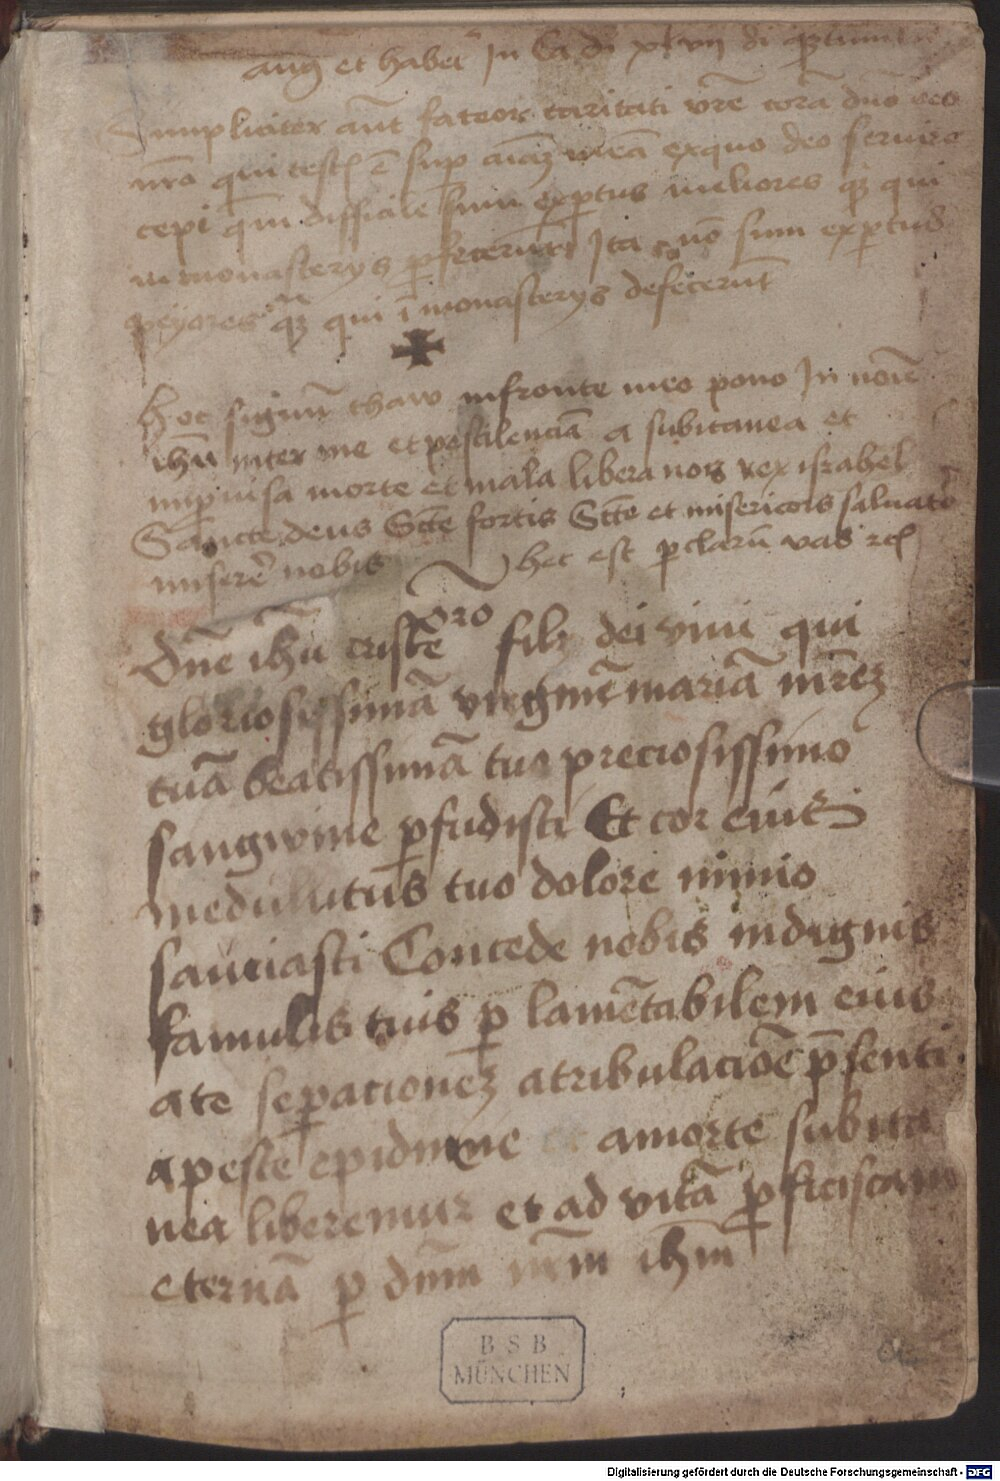 aug et habet In Ca di xlvij di
Simpliciter aut fateor caritati vre cora dno deo
nro qui test e sup aiaz mea exquo deo servire
cepi qm difficile sum exptus meliores qz qui
in monasterys pfecerunt Ita no sum exptus
peyores qz qui i monasterys defecerut
✠
Hoc signu thaw infronte meo pono In noie
ihu inter me et pestilencia a subitanea et
impuisa morte et mala libera nos rex israhel
Sancte deus Scte fortis Scte et misericors saluator
misere nobis hec est pclaru vas rcl
oro
Dne ihu criste fily dei viui qui
gloriosissima virgine maria mrez
tua beatissima tuo preciosissimo
sangwine pfudisti Et cor eius
medullitus tuo dolore nimio
sauciasti Concede nobis indignis
famulis tuis p lametabilem eius
ate sepacionez atribulacioe psenti
apeste epidimie amorte subita
nea liberemur et ad vita pficiscam
eterna p dnm nrm ihm
B S B
MÜNCHEN
Digitalisierung gefördert durch die Deutsche Forschungsgemeinschaft - DFG